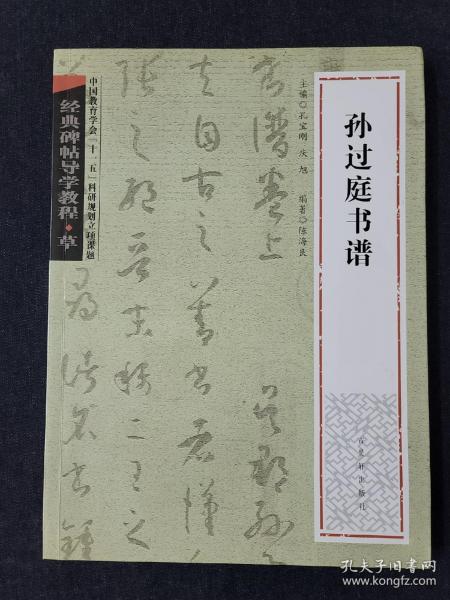 孙过庭书谱
主编◎孔宝刚 庆旭 编著◎陈海良
中国教育学会「十一五」科研规划立项课题
经典碑帖导学教程·草
书谱卷上
吴郡孙
夫自古之善书者汉
张之绝晋末称二王之
寻诸名书锺
出版社
孔夫子旧书网
www.kongfz.com